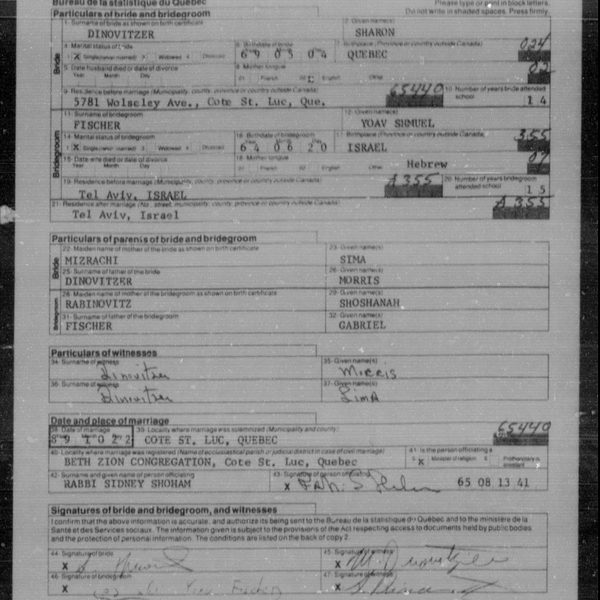 Bureau de la statistique du Québec
Please type or print in block letters.
Particulars of bride and bridegroom
Do not write in shaded spaces. Press firmly.
1- Surname of bride as shown on birth certificate
2- Given name(s)
DINOVITZER
SHARON
4- Marital status of bride
6- Birthdate of bride
7- Birthplace (Province or country outside Canada)
024
X Single (never married) Widowed Divorced
6 9 0 5 0 4
QUEBEC
5- Date husband died or date of divorce
8- Mother tongue
02
Year Month Day
French English Other
9- Residence before marriage (Municipality, county, province or country outside Canada)
65440
10- Number of years bride attended school
5781 Wolseley Ave., Cote St. Luc, Que.
1 4
11- Surname of bridegroom
12- Given name(s)
FISCHER
YOAV SHMUEL
14- Marital status of bridegroom
16- Birthdate of bridegroom
17- Birthplace (Province or country outside Canada)
355
X Single (never married) Widowed Divorced
6 4 0 6 2 0
ISRAEL
15- Date wife died or date of divorce
18- Mother tongue
Year Month Day
French English Other
Hebrew
19- Residence before marriage (Municipality, county, province or country outside Canada)
A355
20- Number of years bridegroom attended school
Tel Aviv, ISRAEL
1 5
21- Residence after marriage (No, street, municipality, county, province or country outside Canada)
A 355
Tel Aviv, Israel
Particulars of parents of bride and bridegroom
22- Maiden name of mother of the bride as shown on birth certificate
23- Given name(s)
MIZRACHI
SIMA
25- Surname of father of the bride
26- Given name(s)
DINOVITZER
MORRIS
28- Maiden name of mother of the bridegroom as shown on birth certificate
29- Given name(s)
RABINOVITZ
SHOSHANAH
31- Surname of father of the bridegroom
32- Given name(s)
FISCHER
GABRIEL
Particulars of witnesses
34- Surname of witness
35- Given name(s)
Dinovitzer
Morris
36- Surname of witness
37- Given name(s)
Dinovitzer
Sima
Date and place of marriage
65440
38- Date of marriage
39- Locality where marriage was solemnized (Municipality and county)
8 9 1 0 2 2
COTE ST. LUC, QUEBEC
40- Locality where marriage was registered (Name of ecclesiastical parish or judicial district in case of civil marriage)
41- Is the person officiating a
BETH ZION CONGREGATION, Cote St. Luc, Quebec
X Minister of religion Prothonotary or assistant
42- Surname and given name of person officiating
43- Signature of person officiating
RABBI SIDNEY SHOHAM
X
65 08 13 41
Signatures of bride and bridegroom, and witnesses
I confirm that the above information is accurate, and authorize its being sent to the Bureau de la statistique du Québec and to the ministère de la
Santé et des Services sociaux. The information given is subject to the provisions of the Act respecting access to documents held by public bodies
and the protection of personal information. The conditions are listed on the back of copy 2.
44- Signature of bride
45- Signature of witness
X
X
46- Signature of bridegroom
47- Signature of witness
X
X